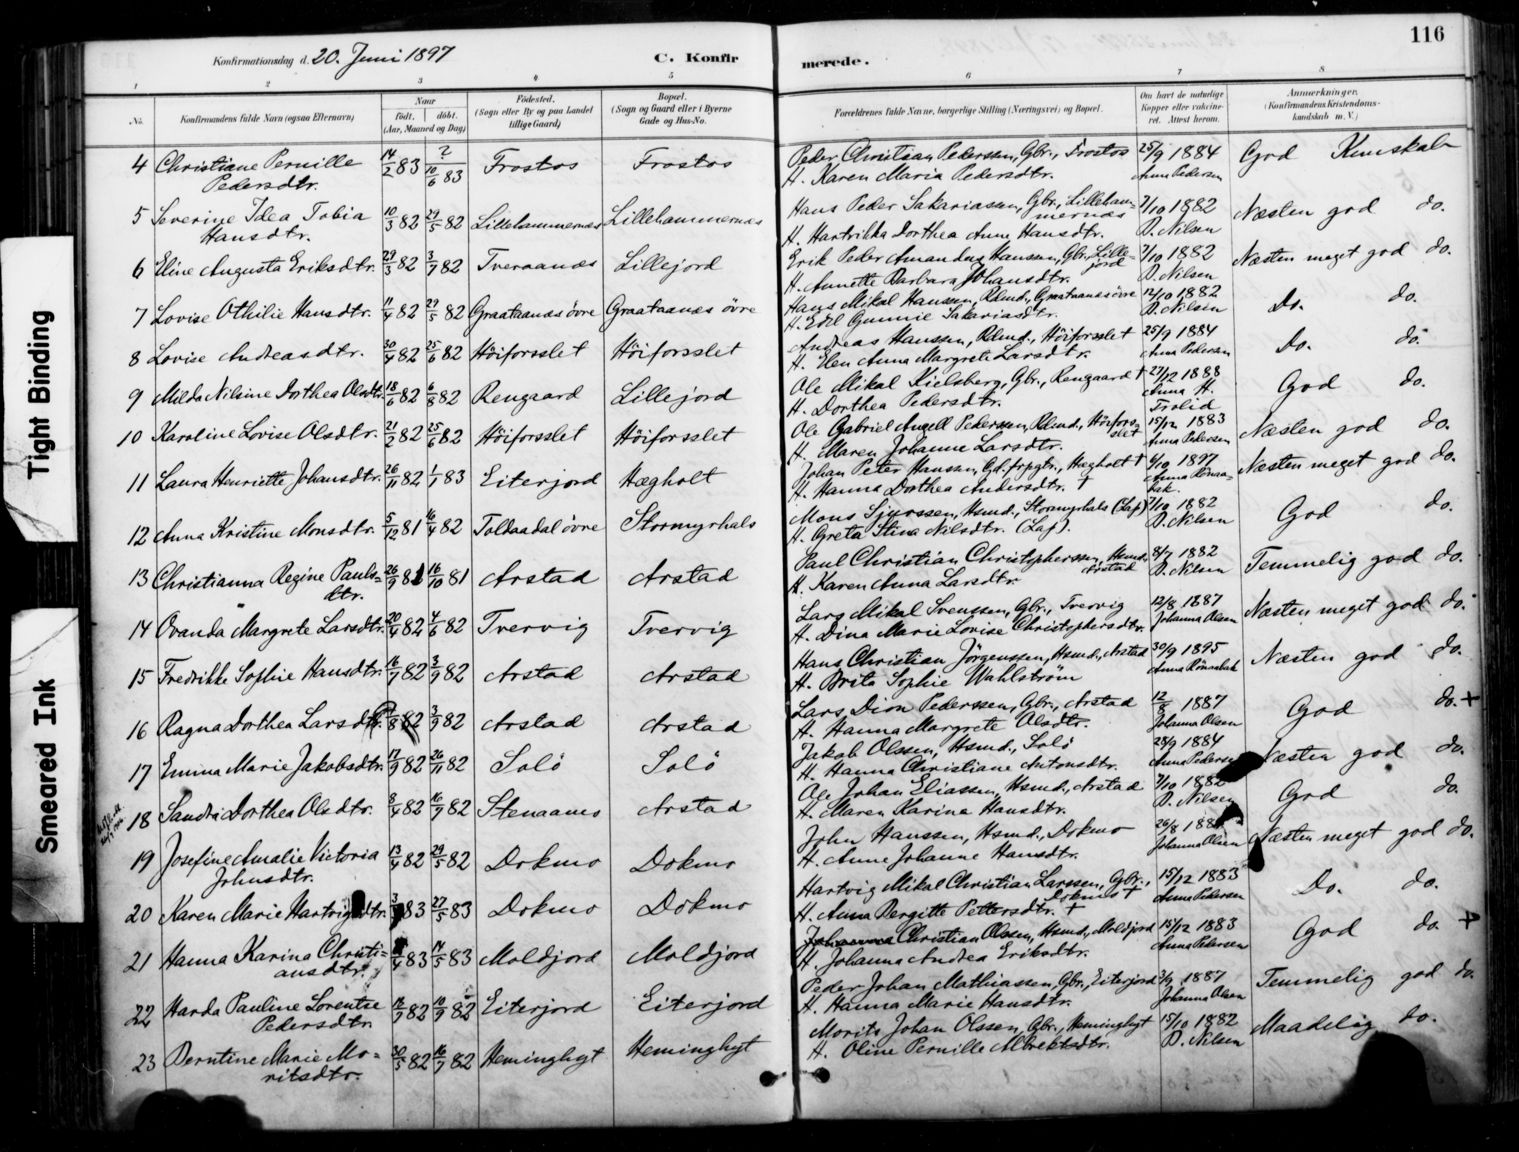 116
Konfirmationsdag d. 20. Juni 1897
C. Konfirmerede.
1 2 3 4 5 6 7 8
No. Konfirmandens fulde Navn (ogsaa Efternavn) Naar født. døbt. (Aar, Maaned og Dag) Fødested. (Sogn eller By og paa Landet tillige Gaard) Bopæl. (Sogn og Gaard eller i Byerne Gade og Hus-No. Forældrenes fulde Navne, borgerlige Stilling (Næringsvei) og Bopæl. Om havt de naturlige Kopper eller vakcineret. Attest herom. Anmerkninger. (Konfirmandens Kristendomskundskab m. V.)
4 Christiane Pernille Pedersdtr. 14/2 83 ? 10/6 83 Frostos Frostos Peder Christian Pedersen, Gbr., Frostos
H. Karen Maria Pedersdtr. 25/9 1884 Anna Pedersen God Kundskab
5 Severine Idea Tobia Hansdtr. 10/3 82 29/5 82 Lillehammernæs Lillehammernæs Hans Peder Sakariassen, Gbr., Lillehammernæs
H. Hartrikka Dorthea Anne Hansdtr. 7/10 1882 D. Nilsen Næsten god do.
6 Eline Augusta Eriksdtr. 23/3 82 3/7 82 Tveraanæs Lillejord Erik Peder Amandus Hanssen, Gbr., Lillejord
H. Annette Barbara Johansdtr. 7/10 1882 D. Nilsen Næsten meget god do.
7 Lovise Othilie Hansdtr. 11/4 82 29/5 82 Graataanæs övre Graataanæs övre Hans Mikal Hanssen, Rdmd., Graataanæs övre
H. Edel Gunnie Sakariasdtr. 12/10 1882 D. Nilsen Do. do.
8 Lovise Andreasdtr. 30/4 82 25/6 82 Höiforsslet Höiforsslet Andreas Hanssen, Rdmd., Höiforsslet
H. Elen Anna Margrete Larsdtr. 25/9 1884 Anna Pedersen Do. do.
9 Milda Nilsine Dorthea Olsdtr. 18/6 82 6/8 82 Rengaard Lillejord Ole Mikal Kielsberg, Gbr., Rengaard †
H. Dorthea Pedersdtr. 27/12 1888 Anna H. God do.
10 Karoline Lovise Olsdtr. 21/2 82 25/6 82 Höiforsslet Höiforsslet Ole Gabriel Angell Pederssen, Rdmd., Höiforsslet
H. Maren Johanne Larsdtr. 15/12 1883 Anna Pedersen Næsten god do.
11 Laura Henriette Johansdtr. 26/11 82 1/1 83 Eiterjord Hægholt Johan Peter Hanssen, Hægholt †
H. Hanna Dorthea Andersdtr. † 6/10 1897 Anna Rönsabak. Næsten meget god do.
12 Anna Kristine Monsdtr. 5/12 81 16/4 82 Tollaadal övre Stormyrhals Mons Sjurssen, Hsmd., Stormyrhals (Lap)
H. Greta Stina Nilsdtr. (Lap). 7/10 1882 D. Nilsen God do.
13 Christianna Regine Paulsdtr. 26/9 81 16/10 81 Arstad Arstad Paul Christian Christopherssen, Hsmd. Arstad
H. Karen Anna Larsdtr. 8/7 1882 D. Nilsen Temmelig god do.
14 Ovanda Margrete Larsdtr. 20/4 82 4/6 82 Tvervig Tvervig Lars Mikal Svenssen, Gbr., Tvervig
H. Dina Marie Lovise Christophersdtr. 12/8 1887 Johanna Olsen Næsten meget god do.
15 Fredrikke Sophie Hansdtr. 16/7 82 3/9 82 Arstad Arstad Hans Christian Jörgenssen, Hsmd., Arstad
H. Brita Sophie Wahlström 30/9 1895 Anna Rönsabak Næsten god do.
16 Ragna Dorthea Larsdtr. 8 82 3/9 82 Arstad Arstad Lars Dion Pederssen, Gbr., Arstad
H. Hanna Margrete Olsdtr. 12/8 1887 Johanna Olsen God do. +
17 Emma Marie Jakobsdtr. 17/9 82 26/11 82 Solö Solö Jakob Olssen, Hsmd., Solö
H. Hanna Christiane Antonsdtr. 28/9 1884 Anna Pedersen Næsten god do.
18 Sandra Dorthea Olsdtr. 8/4 82 16/7 82 Stenaamo Arstad Ole Johan Eliassen, Hsmd., Arstad
H. Maren Karina Hansdtr. 7/10 1882 D. Nilsen God do.
19 Josefine Amalie Victoria Johnsdtr. 13/4 82 29/5 82 Dokmo Dokmo John Hanssen, Hsmd., Dokmo
H. Anne Johanne Hansdtr. 26/8 188 Johanna Olsen Næsten meget god do.
20 Karen Marie Hartvigsdtr. 3 83 27/5 83 Dokmo Dokmo Hartvig Mikal Christian Larssen, Gbr., Dokmo †
H. Anna Bergitte Pettersdtr. † 15/12 1883 Anna Pedersen Do. do.
21 Hanna Karina Christiansdtr. 4 83 14/5 83 Moldjord Moldjord Christian Olssen, Hsmd., Moldjord
H. Johanna Andrea Eriksdtr. 15/12 1883 Anna Pedersen God do. +
22 Harda Pauline Lorentze Pedersdtr. 18/7 82 10/9 82 Eiterjord Eiterjord Peder Johan Mathiassen, Gbr., Eiterjord
H. Hanna Marie Hansdtr. 3/9 1887 Johanna Olsen Temmelig god do.
23 Berntine Marie Moritsdtr. 30/5 82 16/7 82 Heminghyt Heminghyt Morits Johan Olssen, Gbr., Heminghyt
H. Oline Pernille Albrektsdtr. 15/10 1882 D. Nilsen Maadelig do.
Tight Binding
Smeared Ink